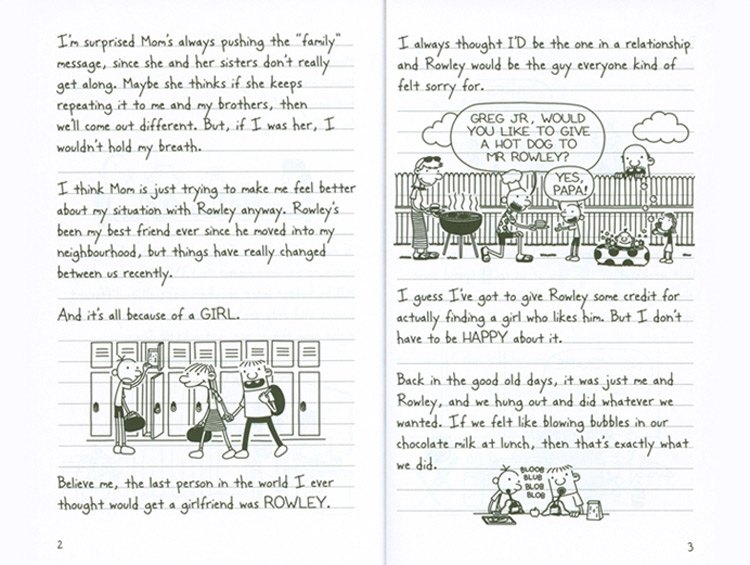 I'm surprised Mom's always pushing the "family"
message, since she and her sisters don't really
get along. Maybe she thinks if she keeps
repeating it to me and my brothers, then
we'll come out different. But, if I was her, I
wouldn't hold my breath.
I think Mom is just trying to make me feel better
about my situation with Rowley anyway. Rowley's
been my best friend ever since he moved into my
neighbourhood, but things have really changed
between us recently.
And it's all because of a GIRL.
Believe me, the last person in the world I ever
thought would get a girlfriend was ROWLEY.
2
I always thought I'D be the one in a relationship
and Rowley would be the guy everyone kind of
felt sorry for.
GREG JR., WOULD
YOU LIKE TO GIVE
A HOT DOG TO
MR ROWLEY?
YES,
PAPA!
I guess I've got to give Rowley some credit for
actually finding a girl who likes him. But I don't
have to be HAPPY about it.
Back in the good old days, it was just me and
Rowley, and we hung out and did whatever we
wanted. If we felt like blowing bubbles in our
chocolate milk at lunch, then that's exactly what
we did.
BLOOB
BLUB
BLOB
BLOB
3